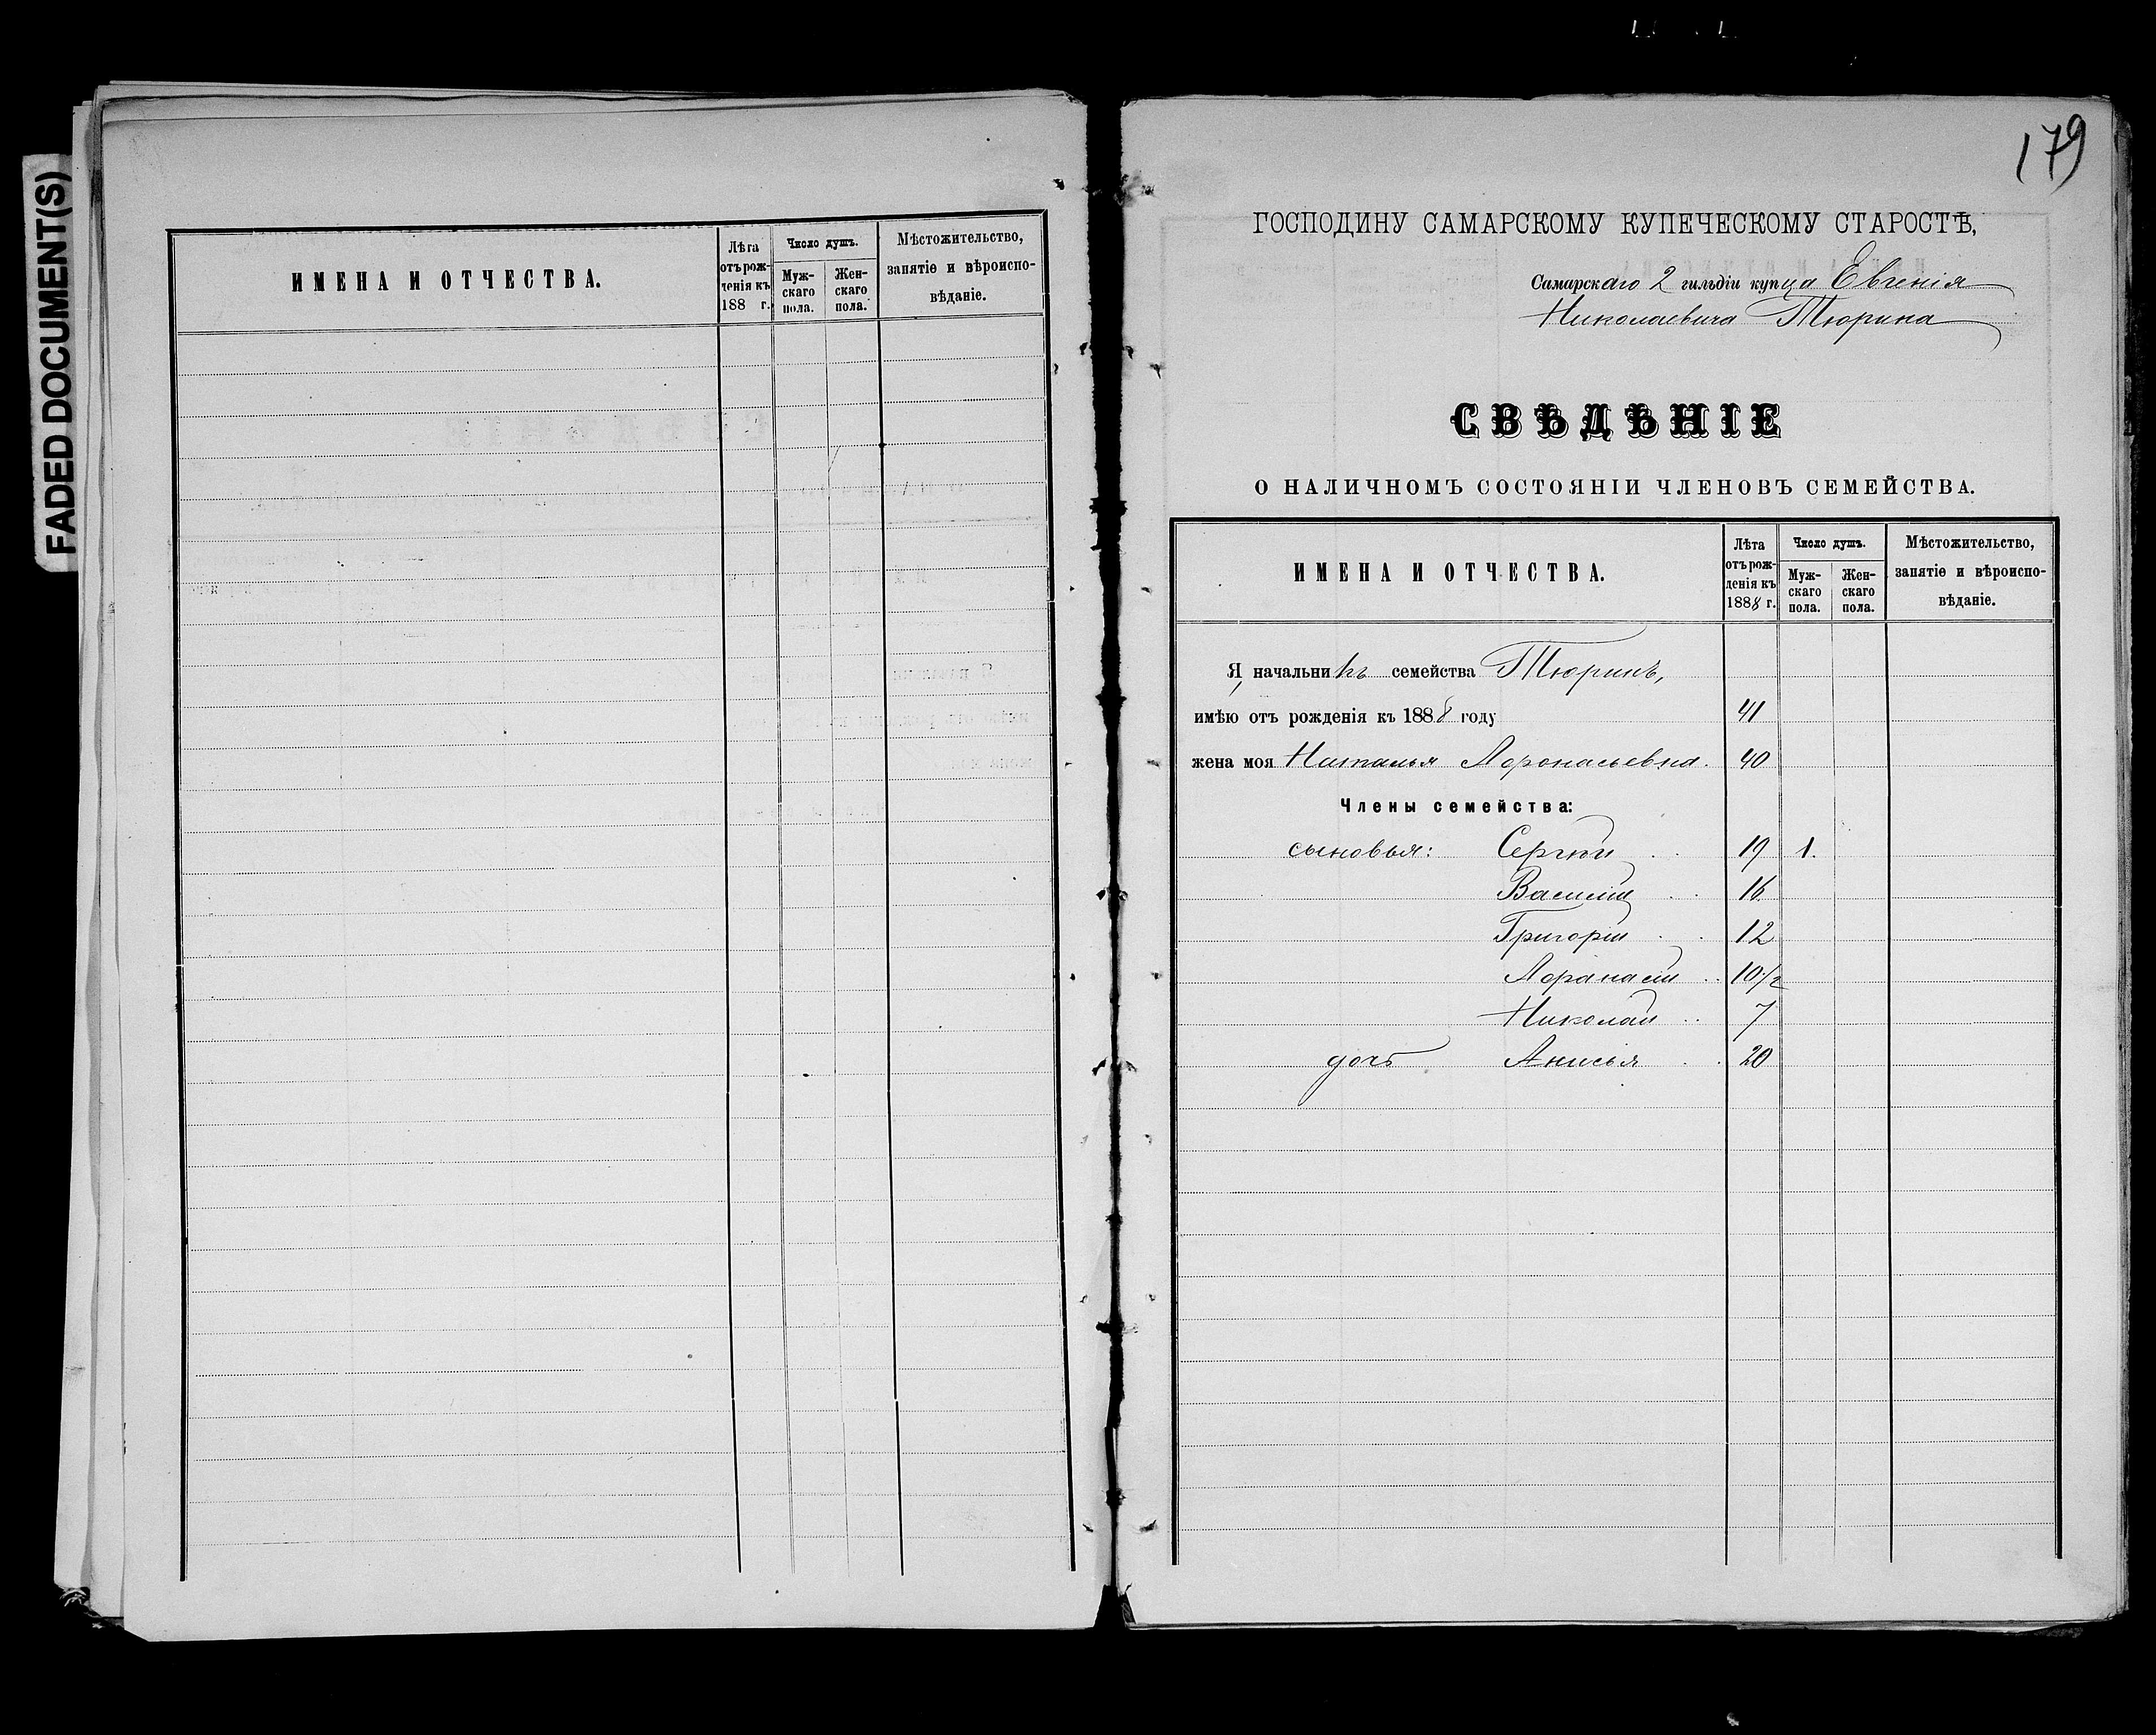 FADED DOCUMENT(S)
ИМЕНА И ОТЧЕСТВА.
Лѣта отъ рожденія къ 188 г.
Число душъ.
Мужскаго пола.
Женскаго пола.
Мѣстожительство, занятіе и вѣроисповѣданіе.
179
ГОСПОДИНУ САМАРСКОМУ КУПЕЧЕСКОМУ СТАРОСТѢ,
Самарскаго 2 гильдіи купца Евгенія
Николаевича Тюрина
СВѢДѢНІЕ
О НАЛИЧНОМЪ СОСТОЯНІИ ЧЛЕНОВЪ СЕМЕЙСТВА.
ИМЕНА И ОТЧЕСТВА.
Лѣта отъ рожденія къ 1888 г.
Число душъ.
Мужскаго пола.
Женскаго пола.
Мѣстожительство, занятіе и вѣроисповѣданіе.
Я, начальникъ семейства Тюринъ,
имѣю отъ рожденія къ 1888 году 41
жена моя Наталья Афонасьевна. 40
Члены семейства:
сыновья: Сергѣй 19 1.
Василій 16
Григорій 12
Афанасій 10 1/2
Николай 7
дочь Анисья 20